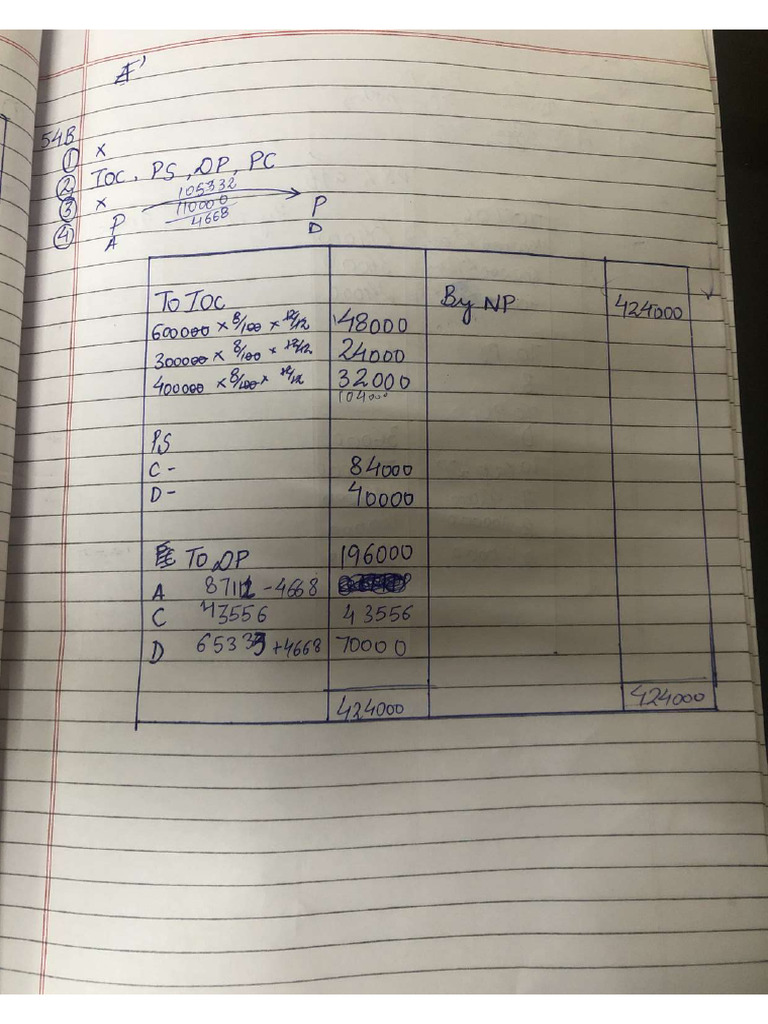 54B
① ×
② IOC, PS, DP, PC
③ × 105332
④ P 110000 P
A 4668 D
To IOC By NP 424000
600000 × 8/100 × 12/12 48000
300000 × 8/100 × 12/12 24000
400000 × 8/100 × 12/12 32000
104000
PS
C - 84000
D - 40000
To DP 196000
A 87112 - 4668
C 43556 43556
D 65333 + 4668 70000
424000 424000